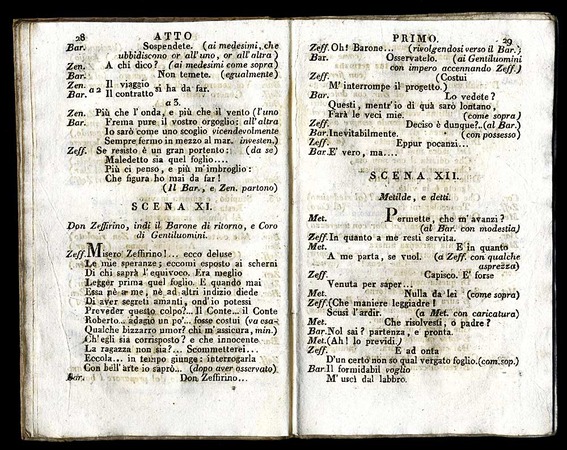 28 ATTO
Bar. Sospendete. (ai medesimi, che
ubbidiscono or all'uno, or all'altra)
Zen. A chi dico? (ai medesimi come sopra)
Bar. Non temete. (egualmente)
Zen. Il viaggio
a 2 si ha da far.
Bar. Il contratto
a 3.
Zen. Più che l'onda, e più che il vento (l'uno
Bar. Frena pure il vostro orgoglio: all'altra
Io sarò come uno scoglio vicendevolmente
Sempre fermo in mezzo al mar. investen.)
Zeff. Se resisto è un gran portento: (da se)
Maledetto sia quel foglio....
Più ci penso, e più m'imbroglio:
Che figura ho mai da far!
(Il Bar., e Zen. partono)
SCENA XI.
Don Zeffirino, indi il Barone di ritorno, e Coro
di Gentiluomini.
Zeff. Misero Zeffirino!... ecco deluse
Le mie speranze; eccomi esposto ai scherni
Di chi saprà l'equivoco. Era meglio
Legger prima quel foglio. E quando mai
Essa pè a me, nè ad altri indizio diede
Di aver segreti amanti, ond'io potessi
Preveder questo colpo?... Il Conte... il Conte
Roberto... adagio un po'... fosse costui (va esa-
Qualche bizzarro umor? chi m'assicura, min.)
Ch'egli sia corrisposto? e che innocente
La ragazza non sia?... Scommetterei...
Eccola... in tempo giunge: interrogarla
Con bell'arte io saprò... (dopo aver osservato)
Bar. Don Zeffirino...
PRIMO. 29
Zeff. Oh! Barone... (rivolgendosi verso il Bar.)
Bar. Osservatelo. (ai Gentiluomini
con impero accennando Zeff.)
Zeff. (Costui
M'interrompe il progetto.)
Bar. Lo vedete?
Questi, mentr'io di quà sarò lontano,
Farà le veci mie. (come sopra)
Zeff. Deciso è dunque?..(al Bar.)
Bar. Inevitabilmente. (con possesso)
Zeff. Eppur pocanzi...
Bar. E' vero, ma....
SCENA XII.
Metilde, e detti.
Met. Permette, che m'avanzi?
(al Bar. con modestia)
Zeff. In quanto a me resti servita.
Met. E in quanto
A me parta, se vuol. (a Zeff. con qualche
asprezza)
Zeff. Capisco. E' forse
Venuta per saper...
Met. Nulla da lei (come sopra)
Zeff. (Che maniere leggiadre!
Scusi l'ardir. (a Met. con caricatura)
Met. Che risolvesti, o padre?
Bar. Nol sai? partenza, e pronta.
Met. (Ah! lo previdi.)
Zeff. E ad onta
D'un certo non so qual vergato foglio.(com.sop.)
Bar. Il formidabil voglio
M'uscì dal labbro.